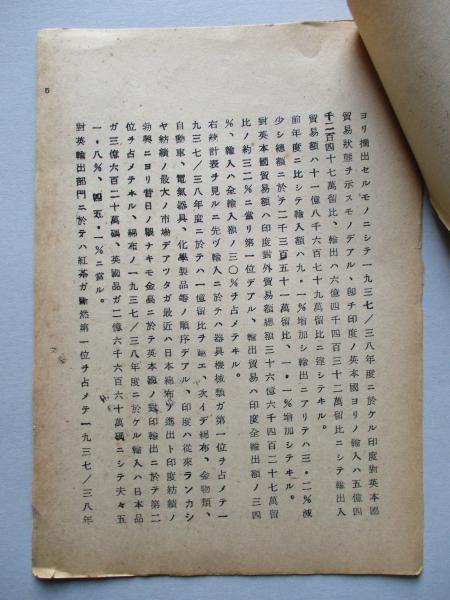 ヨリ摘出セルモノニシテ一九三七/三八年度ニ於ケル印度對英本國
貿易狀態ヲ示スモノデアル、卽チ印度ノ英本國ヨリノ輸入ハ五億四
千二百四十七萬留比、輸出ハ六億四千四百三十二萬留比ニシテ輸出入
貿易額ハ十一億八千六百七十九萬留比ニ達シテキル。
前年度ニ比シテ輸入額ハ九・一%增加シ輸出ニアリテハ三・二%減
少シ總額ニ於テ二千三百五十一萬留比、一・一%增加シテキル。
對英本國貿易額ハ印度對外貿易額總額三十六億六千四百二十七萬留
比ノ約三二%ニ當リ第一位デアル、輸出貿易ハ印度全輸出額ノ三四
%、輸入ハ全輸入額ノ三〇%ヲ占メテキル。
右統計表ヲ見ルニ先ヅ輸入ニ於テハ器具機械類ガ第一位ヲ占メテ一
九三七/三八年度ニ於テハ一億留比ヲ越エ、次イデ綿布、金物類、
自動車、電氣器具、化學製品等ノ順序デアル、印度ハ從來ランカシ
ヤ紡績ノ最大ノ市場デアツタガ最近ハ日本綿布ノ進出ト印度紡績ノ
勃興ニヨリ昔日ノ觀ナキモ金高ニ於テ英本國ノ對印輸出ニ於テ第二
位ヲ占メテキル、綿布ノ一九三七/三八年度ニ於ケル輸入ハ日本品
ガ三億六百二十萬碼、英國品ガ二億六千六百六十萬碼ニシテ夫々五
一・八%、四五・一%ニ當ル。
對英輸出部門ニ於テハ紅茶ガ斷然第一位ヲ占メテ一九三七/三八年
5